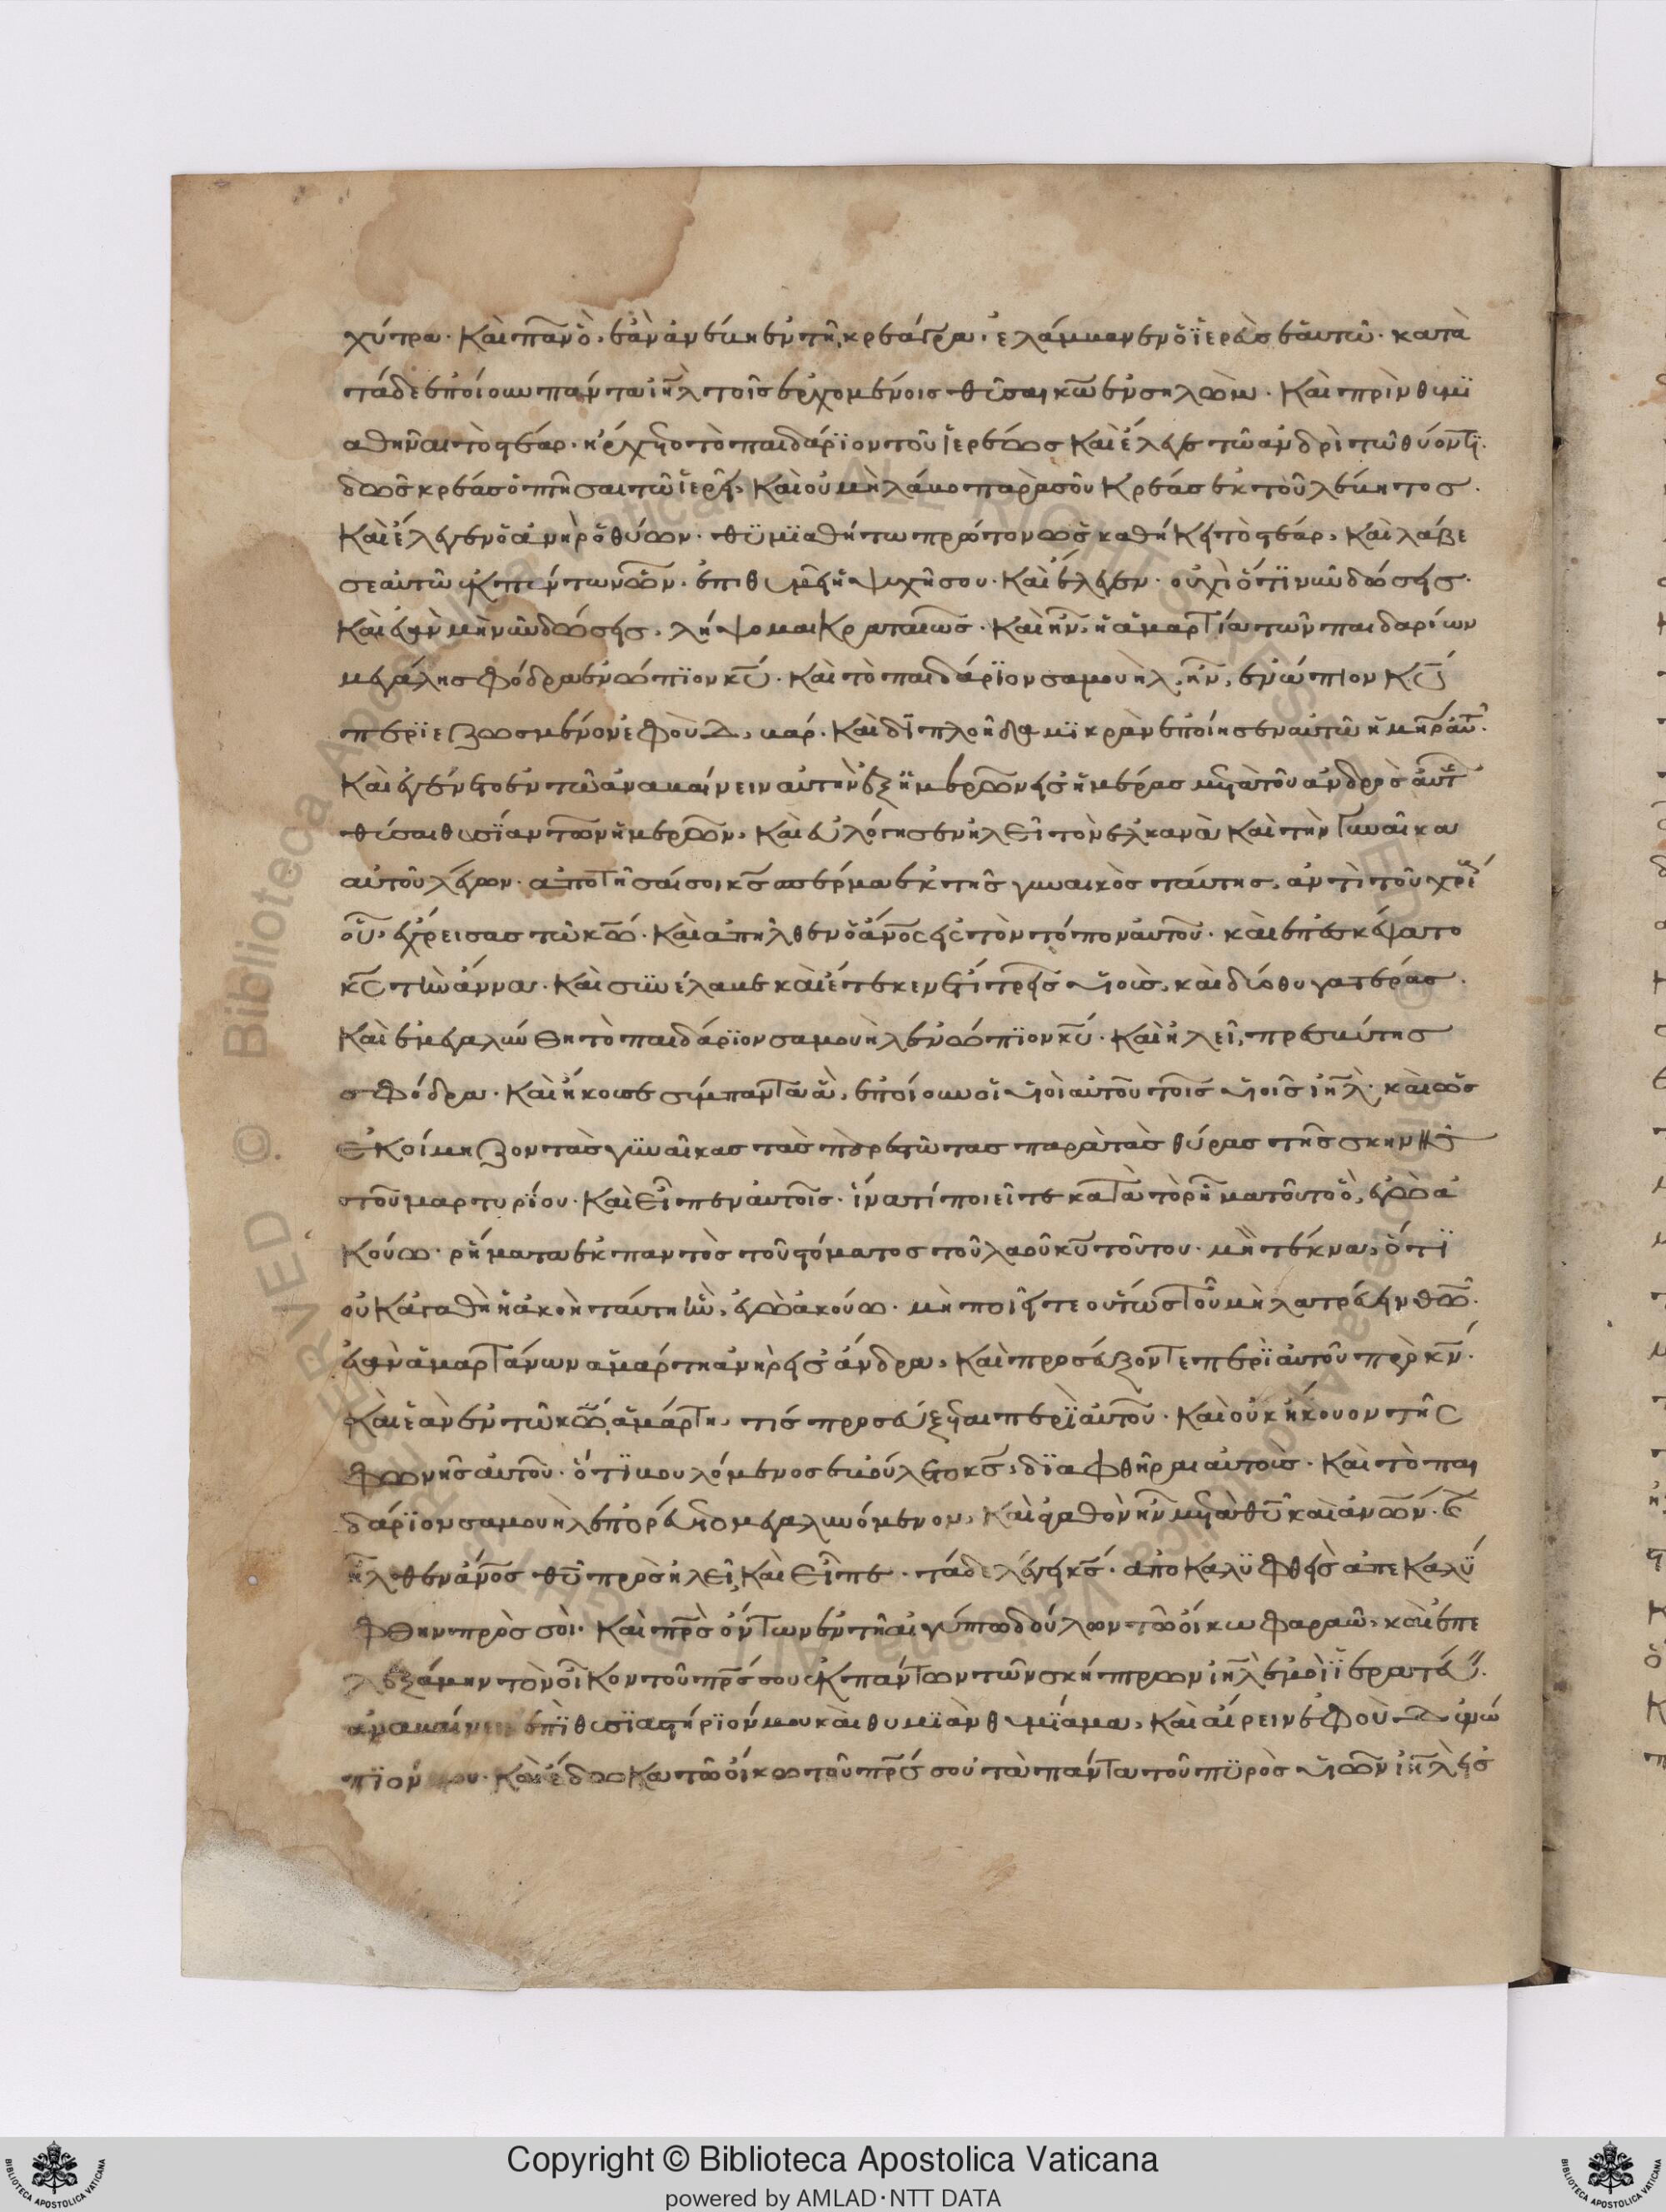 χύτρα· καὶ πᾶν ὃ, ἐὰν ἀνέβη ἐν τῆ, κρεάγρα· ἐλάμβανεν ὁ ἱερεὺς ἑαυτῶ· κατὰ
τάδε ἐποίουν παντα ιηλ τοῖς ἐρχομένοις θῦσαι κω ἐν σηλώμ· καὶ πρὶν θυμϊ
αθῆναι τὸ στέαρ· ἤρχετο τὸ παιδάριον τοῦ ἱερέως καὶ ἔλεγε τῶ ἀνδρὶ τῶ θύοντϊ·
δὸς κρέας ὀπτῆσαι τῶ ἱερεῖ, καὶ οὐ μὴ λάβο παρὰ σοῦ κρέας ἐκ τοῦ λέβητος·
καὶ ἔλεγεν ὁ ἀνὴρ ὁ θύων· θυμϊαθήτω πρῶτον ὡς καθήκει τὸ στέαρ, καὶ λάβε
σεαυτῶ ἐκ πάντων ὧν· ἐπιθυμεῖ ἡ ψυχή σου· καὶ ἔλεγεν· οὐχὶ ὅτϊ νῦν δώσεις·
καὶ ἐὰν μὴ νῦν δώσεις, λήψομαι κραταιῶς· καὶ ἦν, ἡ ἁμαρτία τῶν παιδαρίων
μεγάλη σφόδρα ἐνώπϊον κυ· καὶ τὸ παιδάριον σαμουὴλ, ἦν, ἐνώπιον κυ
περϊεζωσμένον ἐφοὺδ, βάρ· καὶ δϊπλοΐδα μϊκρὰν ἐποίησεν αὐτῶ ἡ μηρ αὐτοῦ·
καὶ ἐγένετο ἐν τῶ ἀναβαίνειν αὐτὴν ἐξ ἡμερῶν εἰς ἡμέρας μετὰ τοῦ ἀνδρὸς αὐτῆς
θῦσαι θυσίαν τῶν ἡμερῶν, καὶ εὐλόγησεν ἠλεὶ τὸν ἐλκανὰ καὶ τὴν γυναῖκα
αὐτοῦ λέγων· ἀποτίσαι σοι κς σπέρμα ἐκ τῆς γυναικὸς ταύτης, ἀντὶ τοῦ χρέ
ους, οὗ ἔχρεισας τῶ κω· καὶ ἀπῆλθεν ὁ ανος εἰς τὸν τόπον αὐτοῦ· καὶ ἐπεσκέψατο
κς τὴν ἄννα· καὶ συνέλαβε καὶ ἔτεκεν ἔτι τρεῖς υἱοὺς, καὶ δύο θυγατέρας·
καὶ ἐμεγαλύνθη τὸ παιδάριον σαμουὴλ ἐνώπϊον κυ· καὶ ἠλεὶ, πρεσβύτης
σφόδρα· καὶ ἤκουσε σύμπαντα ἃ, ἐποίουν οἱ υἱοὶ αὐτοῦ τοῖς υἱοῖς ιηλ· καὶ ὡς
ἐκοίμηζον τὰς γυναῖκας τὰς παρεστώτας παρὰ τὰς θύρας τῆς σκηνῆς
τοῦ μαρτυρίου· καὶ εἶπεν αὐτοῖς· ἵνα τί ποιεῖτε κατὰ τὸ ρῆμα τοῦτο ὃ, ἐγὼ ἀ
κούω· ρήματα ἐκ παντὸς τοῦ στόματος τοῦ λαοῦ κυ τούτου· μὴ τέκνα, ὅτϊ
οὐκ ἀγαθὴ ἡ ἀκοὴ ταύτη ἣν, ἐγὼ ἀκούω· μὴ ποιεῖτε οὕτως τοῦ μὴ λατρεύειν θω·
ἐὰν ἁμαρτάνων ἁμάρτη ἀνὴρ εἰς ἄνδρα, καὶ προσεύξονται περϊ αὐτοῦ πρὸς κν·
καὶ ἐὰν ἐν τῶ κω, ἁμάρτη, τίς προσεύξεται περϊ αὐτοῦ· καὶ οὐκ ἤκουον τῆς
φωνῆς αὐτοῦ· ὅτϊ βουλόμενος ἐβούλετο κς, δϊαφθῆραι αὐτοὺς· καὶ τὸ παι
δάριον σαμουὴλ ἐπορεύετο μεγαλυνόμενον, καὶ ἀγαθὸν ἦν μετὰ θυ καὶ ανων· καὶ
ἦλθεν ανος θυ πρὸς ἠλεὶ, καὶ εἶπε· τάδε λέγει κς· ἀποκαλυφθεὶς ἀπεκαλύ
φθην πρὸς σοὶ· καὶ πρς ὄντων ἐν τῆ αἰγύπτω δούλων τῶ οἴκω φαραὼ, καὶ ἐπε
λεξάμην τὸν οἶκον τοῦ πρς σου ἐκ πάντων τῶν σκήπτρων ιηλ ἐμοὶ ϊερατεύ·
ἀναβαίνειν ἐπϊ θυσϊαστήρϊόν μου καὶ θυμϊὰν θυμϊαμα, καὶ αἴρειν ἐφοὺδ ἐνώ
πϊόν μου· καὶ ἔδωκα τῶ οἴκω τοῦ πρς σοὺ τὰ πάντα τοῦ πυρὸς υἱῶν ιηλ εἰς